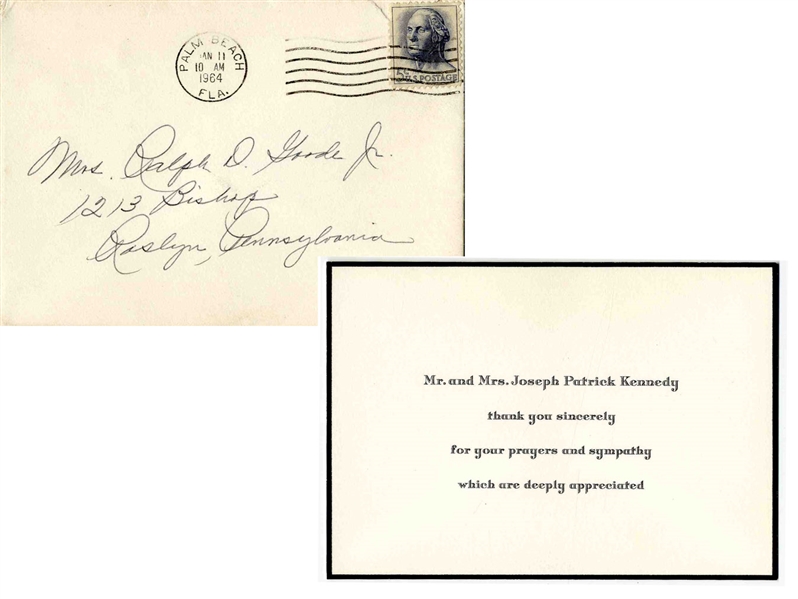 PALM BEACH
JAN 11
10 AM
1964
FLA.
5¢
U.S. POSTAGE
Mrs. Ralph D. Goode Jr.
1213 Bishop
Roslyn, Pennsylvania
Mr. and Mrs. Joseph Patrick Kennedy
thank you sincerely
for your prayers and sympathy
which are deeply appreciated